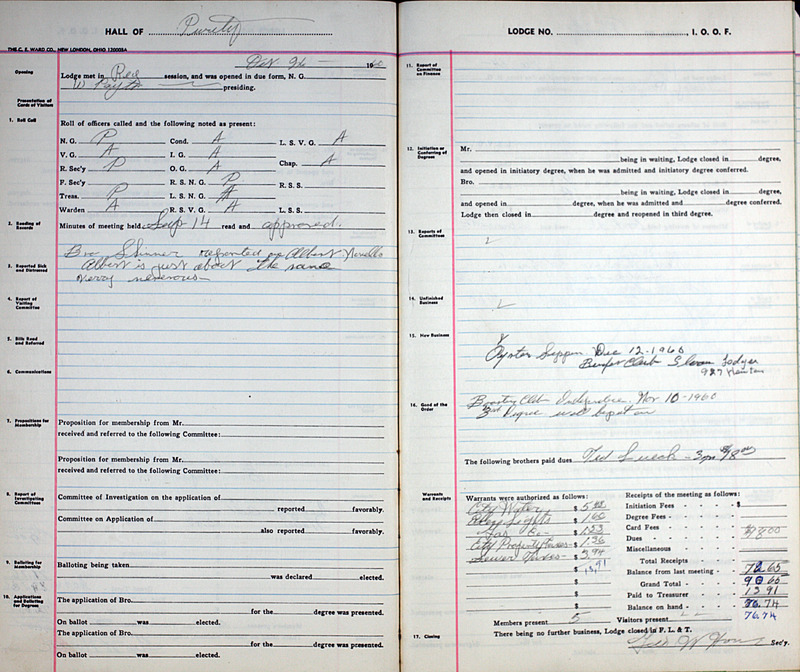 HALL OF Purity
THE C. E. WARD CO., NEW LONDON, OHIO 120008A
Oct 26 — 1960
Opening
Lodge met in Reg session, and was opened in due form, N. G.
W presiding.
Presentation of Cards of Visitors
1. Roll Call
Roll of officers called and the following noted as present:
N. G. P Cond. A L. S. V. G. A
V. G. A I. G. A
R. Sec'y P O. G. A Chap. A
F. Sec'y R. S. N. G. P R. S. S.
Treas. P L. S. N. G. A
Warden A R. S. V. G. A L. S. S.
2. Reading of Records
Minutes of meeting held Sep 14 read and approved.
Bro Skinner reported on Albert
3. Reported Sick and Distressed
Albert is just about the same
very
4. Report of Visiting Committee
5. Bills Read and Referred
6. Communications
7. Propositions for Membership
Proposition for membership from Mr.
received and referred to the following Committee:
Proposition for membership from Mr.
received and referred to the following Committee:
8. Report of Investigating Committees
Committee of Investigation on the application of
reported favorably.
Committee on Application of
also reported favorably.
9. Balloting for Membership
Balloting being taken
was declared elected.
10. Applications and Balloting for Degrees
The application of Bro.
for the degree was presented.
On ballot was elected.
The application of Bro.
for the degree was presented.
On ballot was elected.
LODGE NO. , I. O. O. F.
11. Report of Committee on Finance
12. Initiation or Conferring of Degrees
Mr.
being in waiting, Lodge closed in degree,
and opened in initiatory degree, when he was admitted and initiatory degree conferred.
Bro.
being in waiting, Lodge closed in degree,
and opened in degree, when he was admitted and degree conferred.
Lodge then closed in degree and reopened in third degree.
13. Reports of Committees
14. Unfinished Business
15. New Business
Oyster Dec 12-1960
927
16. Good of the Order
Nov 10-1960
3rd Degree will be put on
The following brothers paid dues
Warrants and Receipts
Warrants were authorized as follows:
Receipts of the meeting as follows:
City Water $
Initiation Fees $
Lights $
Degree Fees
Gas $
Card Fees
City Property Taxes $ 1.36
Dues
Sewer $ 3.94
Miscellaneous
13.91
Total Receipts
Balance from last meeting 72.65
Grand Total 90 65
Paid to Treasurer 13 91
Balance on hand 76.74
76.74
Members present 5 Visitors present
17. Closing
There being no further business, Lodge closed in F. L. & T.
Sec'y.